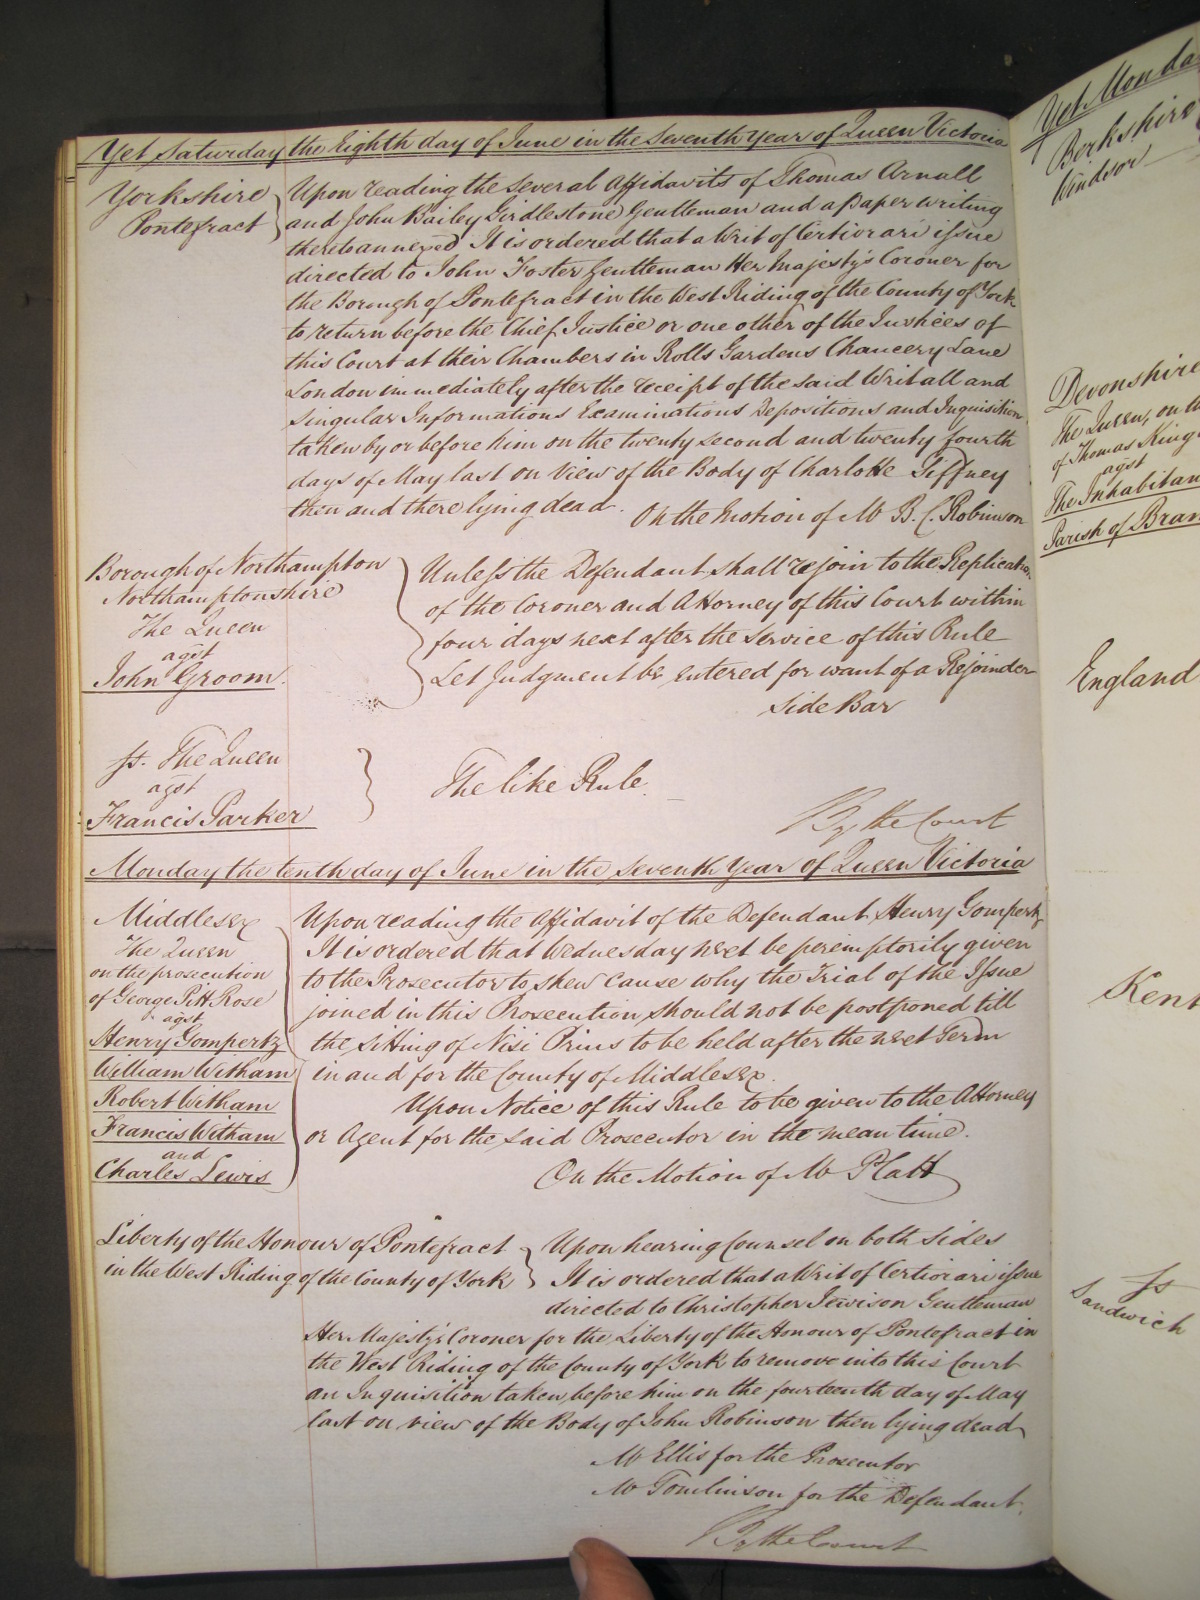 Yet Saturday the Eighth day of June in the Seventh Year of Queen Victoria
Yorkshire
Pontefract
Upon reading the several Affidavits of Thomas Arnall
and John Bailey Girdlestone Gentleman and a paper writing
thereto annexed It is ordered that a Writ of Certiorari issue
directed to John Foster Gentleman Her Majesty's Coroner for
the Borough of Pontefract in the West Riding of the County of York
to return before the Chief Justice or one other of the Justices of
this Court at their Chambers in Rolls Gardens Chancery Lane
London immediately after the receipt of the said Writ all and
singular Informations Examinations Depositions and Inquisition
taken by or before him on the twenty second and twenty fourth
days of May last on View of the Body of Charlotte Tiffney
then and there lying dead.
On the Motion of Mr B. C. Robinson
Borough of Northampton
Northamptonshire
The Queen
agst
John Groom.
Unless the Defendant shall rejoin to the Replication
of the Coroner and Attorney of this Court within
four days next after the Service of this Rule
Let Judgment be entered for want of a Rejoinder
Side Bar
ss. The Queen
agst
Francis Parker
The like Rule.
By the Court
Monday the tenth day of June in the Seventh Year of Queen Victoria
Middlesex
The Queen
on the prosecution
of George Pitt Rose
agst
Henry Gompertz
William Witham
Robert Witham
Francis Witham
and
Charles Lewis
Upon reading the Affidavit of the Defendant Henry Gompertz
It is ordered that Wednesday next be peremptorily given
to the Prosecutor to shew cause why the Trial of the Issue
joined in this Prosecution should not be postponed till
the sitting of Nisi Prius to be held after the next Term
in and for the County of Middlesex.
Upon Notice of this Rule to be given to the Attorney
or Agent for the said Prosecutor in the mean time.
On the Motion of Mr Platt
Liberty of the Honour of Pontefract
in the West Riding of the County of York
Upon hearing Counsel on both sides
It is ordered that a Writ of Certiorari issue
directed to Christopher Jewison Gentleman
Her Majesty's Coroner for the Liberty of the Honour of Pontefract in
the West Riding of the County of York to remove into this Court
an Inquisition taken before him on the fourteenth day of May
last on view of the Body of John Robinson then lying dead
Mr Ellis for the Prosecutor
Mr Tomlinson for the Defendant.
By the Court
Yet Monda
Berkshire
Windsor
Devonshire
The Queen, on th
of Thomas King
agst
The Inhabitan
Parish of Bran
England
Kent
ss
Sandwich